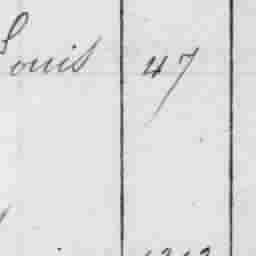 Louis 47